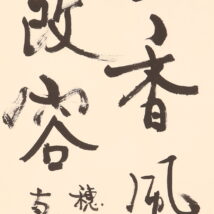 香風
改容
穂